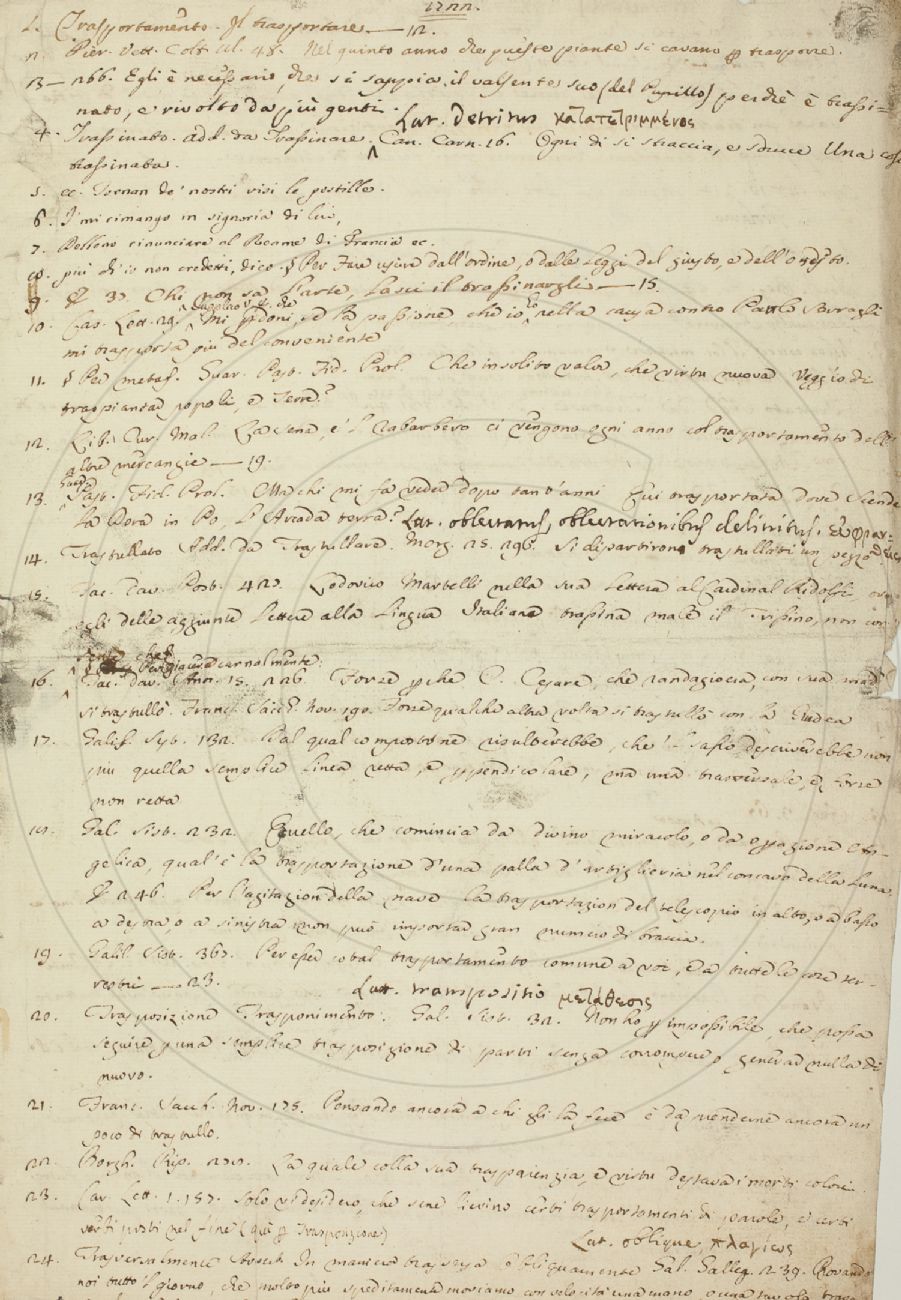 1. Trasportamento. Il trasportare — 12.
2. Pier. Vett. Colt. Ul. 48. Nel quinto anno che queste piante si cavano p trasporre.
13 — 266. Egli è necessario, che si sappia il valsente suo (del Pupillo) perchè è trassi=
nato, e rivolto da più genti. Lat. detritus κατατετριμμένος
4. Trassinato. add. da Trassinare. Can. Carn. 16. Ogni dì si straccia, e sdruce Una cosa
trassinata.
5. ec. Tornan de' nostri visi le postille.
6. I' mi rimango in signoria di lui,
7. Volleno rinunciare al Reame di Francia ec.
più ch' io non credetti, dico. § Per Far uscire dall' ordine, o dalle leggi del giusto, e dell' onesto.
9. Chi non sa l'arte, lasci il trassinargli — 15.
10. Cas. Lett. 29. Mi perdoni, se la passione, che io ho nella causa contro
mi trasporta più del conveniente
11. § Per metaf. Guar. Past. Fid. Prol. Che insolito valor, che virtù nuova Veggio di
traspiantar popoli, e Terre?
12. Lib. Cur. Mal. La sena, e 'l rabarbero ci vengono ogni anno col trasportamento dell'
altre mercanzie — 19.
13. Past. Fid. Prol. Ma chi mi fa veder dopo tant' anni Qui trasportata dove Scende
La Dora in Po, l' Arcada terra? Lat. oblectatus, oblectationibus delinitus.
14. Trastullato Add. da Trastullare. Morg. 25. 296. Si dipartirono trastullati un pezzo
15. Tac. Dav. Post. 427. Lodovico Martelli nella sua lettera al Cardinal Ridolfi
egli delle aggiunte Lettere alla Lingua Italiana trassina male il Trissino, non con
sente che
Per giacere carnalmente.
16. Tac. Dav. Ann. 15. 226. Forse pche C. Cesare, che randagiava, con sua mad
si trastullò. Franc. Sacch. Nov. 190. Forse qualche altra volta si trastullò con la Giudea
17. Galil. Sist. 132. Dal qual composto ne risulterebbe, che 'l sasso descriverebbe non
più quella semplice linea retta, e ppendicolare, ma una trasversale, e forse
non retta
18. Gal. Sist. 232. Quello, che comincia da divino miracolo, o da opazione An=
gelica, qual' è la trasportazione d'una palla d' artiglieria nel concavo della Luna.
246. Per l'agitazion della nave la trasportazion del telescopio in alto, o a basso
a destra, o a sinistra non può importar gran numero di braccia.
19. Galil. Sist. 367. Per esser cotal trasportamento comune a voi, e a tutte le cose ter=
restri — 23.
Lat. transpositio μετάθεσις
20. Trasposizione Trasponimento. Gal. Sist. 32. Non ho p impossibile, che possa
seguire p una semplice trasposizione di parti senza corrompere, o generar nulla di
nuovo.
21. Franc. Sacch. Nov. 175. Pensando ancora a chi gli la fece è da renderne ancora un
poco di trastullo.
22. Borgh. Rip. La quale colla sua trasparenzia, e virtù destava i morti colori.
23. Car. Lett. 1. 157. Solo vi desidero, che sene lievino certi trasportamenti di parole, e certi
verbi posti nel fine (qui p Trasposizione)
Lat. oblique, πλαγίως
24. Trasversalmente Avverb. In maniera trasversa Obliquamente Gal. Galleg. 239. Provando
noi tutto 'l giorno, che molto più speditamente moviamo con velocità una mano, o una tavola